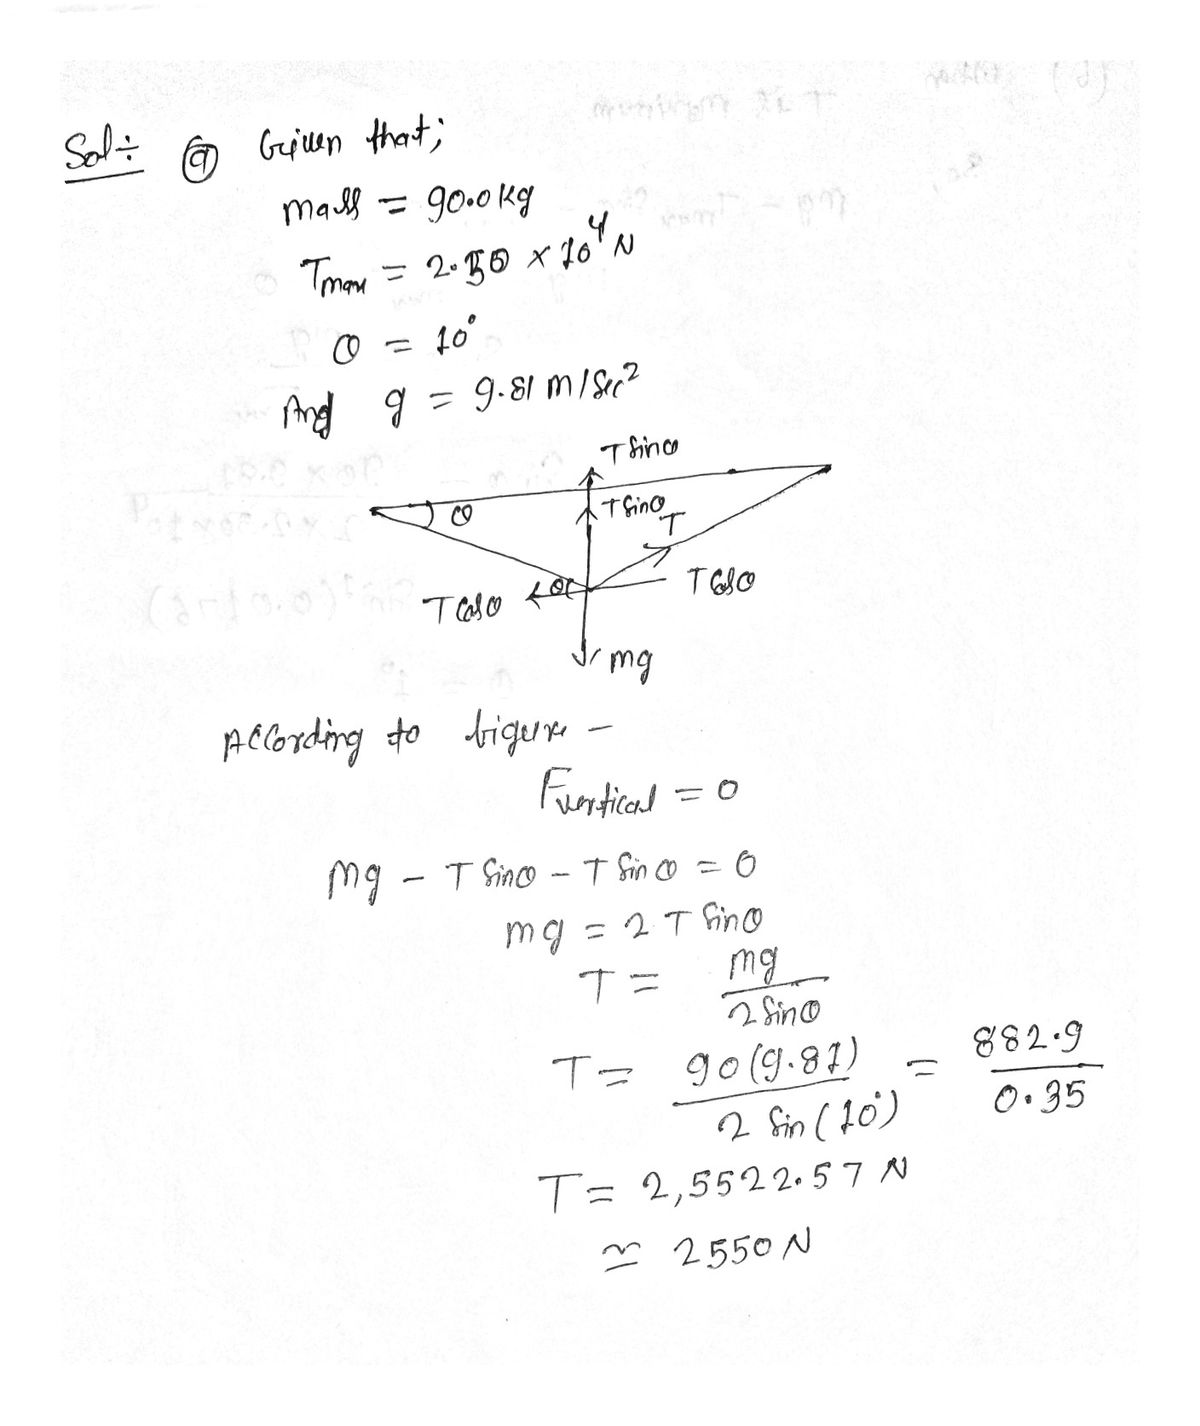 Sol÷ (a) Given that;
mass = 90.0 kg
Tmax = 2.50 × 10⁴ N
θ = 10°
And g = 9.81 m/sec²
T sinθ
T sinθ
θ
T
T cosθ
θ
T cosθ
mg
According to figure –
Fvertical = 0
mg – T sinθ – T sinθ = 0
mg = 2 T sinθ
T = mg / 2 sinθ
T = 90(9.81) / 2 sin(10°) = 882.9 / 0.35
T = 2,5522.57 N
≃ 2550 N